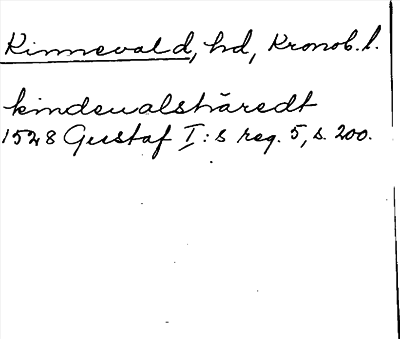 Kinnevald, hd, Kronob. l.
kindewalshäredt
1528 Gustaf I:s reg. 5, s. 200.